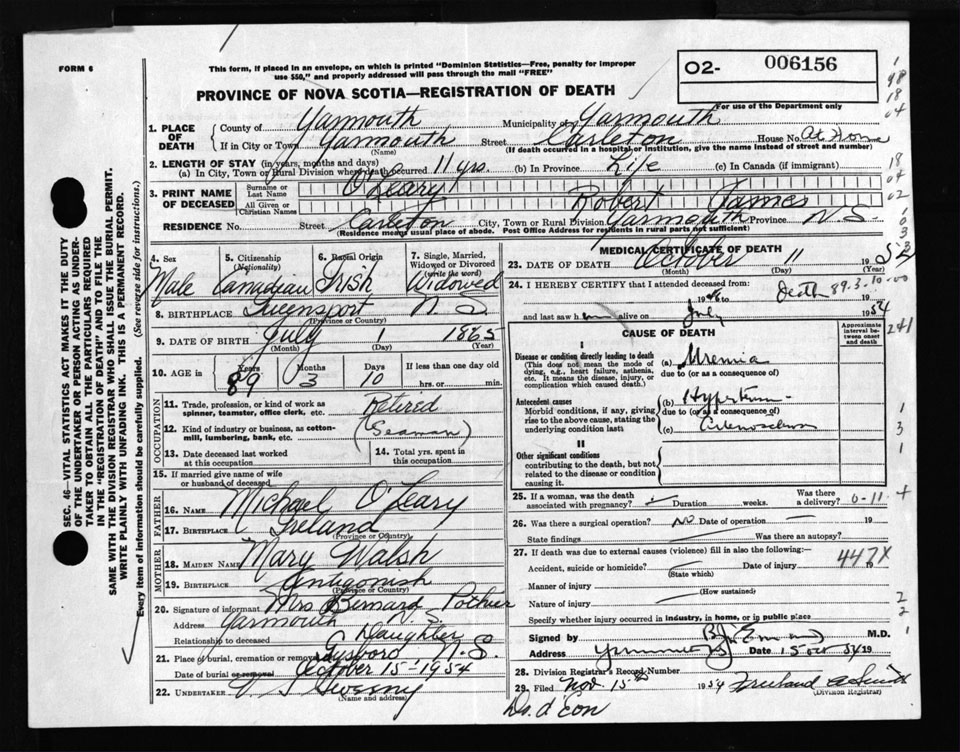 FORM 6
This form, if placed in an envelope, on which is printed "Dominion Statistics—Free, penalty for improper
use $50," and properly addressed will pass through the mail "FREE"
O2- 006156
For use of the Department only
PROVINCE OF NOVA SCOTIA—REGISTRATION OF DEATH
1. PLACE OF DEATH
County of Yarmouth Municipality of Yarmouth
If in City or Town Yarmouth Street Carleton House No. At Home
(Name) (If death occurred in a hospital or institution, give the name instead of street and number)
2. LENGTH OF STAY (in years, months and days)
(a) In City, Town or Rural Division where death occurred 11 yrs (b) In Province Life (c) In Canada (if immigrant)
3. PRINT NAME OF DECEASED
Surname or Last Name O'Leary
All Given or Christian Names Robert James
RESIDENCE No. Street Carleton City, Town or Rural Division Yarmouth Province N.S.
(Residence means usual place of abode. Post Office Address for residents in rural parts not sufficient)
4. Sex 5. Citizenship (Nationality) 6. Racial Origin 7. Single, Married, Widowed or Divorced (write the word)
Male Canadian Irish Widowed
8. BIRTHPLACE Queensport N.S.
(Province or Country)
9. DATE OF BIRTH July 1 1865
(Month) (Day) (Year)
10. AGE in Years Months Days If less than one day old
89 3 10 hrs. or min.
OCCUPATION
11. Trade, profession, or kind of work as spinner, teamster, office clerk, etc. Retired
12. Kind of industry or business, as cotton-mill, lumbering, bank, etc. (Seaman)
13. Date deceased last worked at this occupation 14. Total yrs. spent in this occupation
15. If married give name of wife or husband of deceased
FATHER
16. NAME Michael O'Leary
17. BIRTHPLACE Ireland
(Province or Country)
MOTHER
18. MAIDEN NAME Mary Walsh
19. BIRTHPLACE Antigonish
(Province or Country)
20. Signature of informant Mrs Bernard Pothier
Address Yarmouth
Relationship to deceased Daughter
21. Place of burial, cremation or removal Guysboro N.S.
Date of burial or removal October 15-1954
22. UNDERTAKER Sweeny
(Name and address)
MEDICAL CERTIFICATE OF DEATH
23. DATE OF DEATH October 11 1954
(Month) (Day) (Year)
24. I HEREBY CERTIFY that I attended deceased from:
19 to Death 89-3-10-00
and last saw h alive on July 1954
CAUSE OF DEATH
Approximate interval between onset and death
I
Disease or condition directly leading to death
(This does not mean the mode of dying, e.g., heart failure, asthenia, etc. It means the disease, injury, or complication which caused death.)
(a) Uremia
due to (or as a consequence of)
Antecedent causes
Morbid conditions, if any, giving rise to the above cause, stating the underlying condition last
(b)
due to (or as a consequence of)
(c)
II
Other significant conditions
contributing to the death, but not related to the disease or condition causing it.
25. If a woman, was the death associated with pregnancy? Duration weeks. Was there a delivery?
26. Was there a surgical operation? no Date of operation 19
State findings Was there an autopsy?
27. If death was due to external causes (violence) fill in also the following:—
Accident, suicide or homicide? Date of injury 19
447X
(State which)
Manner of injury
(How sustained)
Nature of injury
Specify whether injury occurred in industry, in home, or in public place
Signed by M.D.
Address Date 15 Oct 54 19
28. Division Registrar's Record Number
29. Filed Nov. 15th 1954
(Division Registrar)
SEC. 46—VITAL STATISTICS ACT MAKES IT THE DUTY
OF THE UNDERTAKER OR PERSON ACTING AS UNDER-
TAKER TO OBTAIN ALL THE PARTICULARS REQUIRED
IN THE "REGISTRATION OF DEATH" AND TO FILE THE
SAME WITH THE DIVISION REGISTRAR WHO SHALL ISSUE THE BURIAL PERMIT.
WRITE PLAINLY WITH UNFADING INK. THIS IS A PERMANENT RECORD.
Every item of information should be carefully supplied. (See reverse side for instructions.)